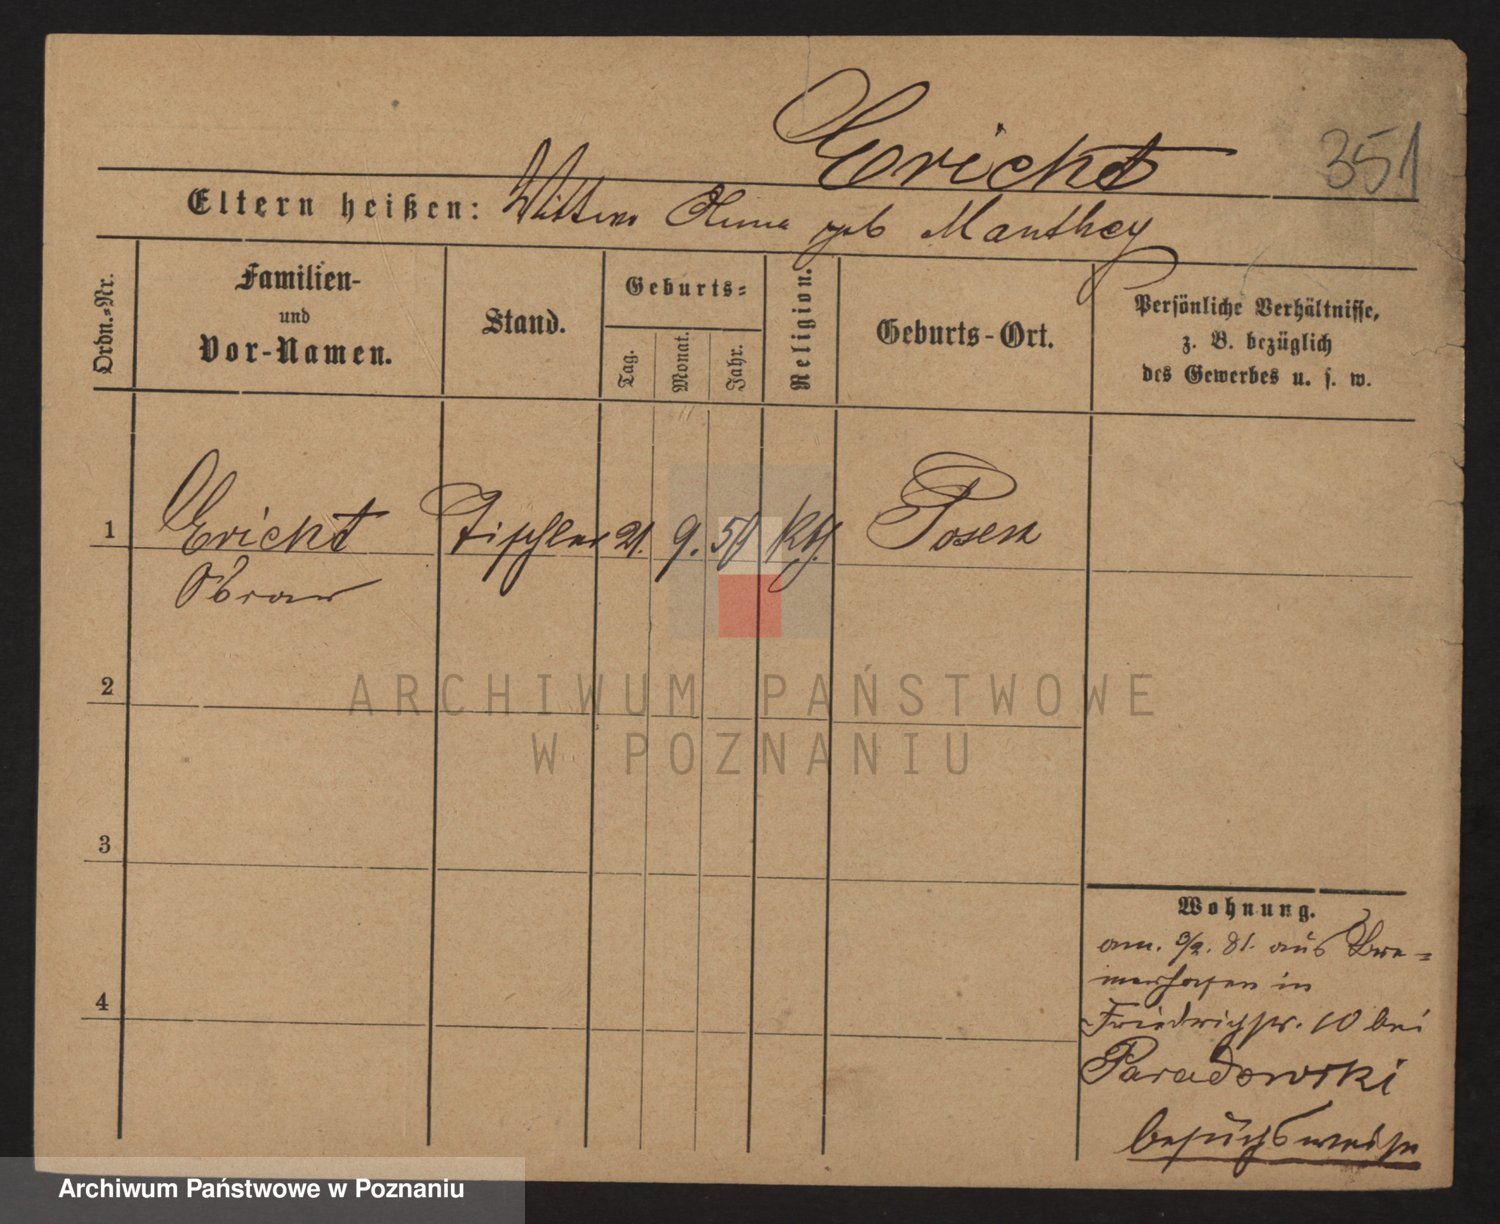 Erickt
351
Eltern heißen: Wittwe geb Manthey
Ordn.-Nr.
Familien-
und
Vor-Namen.
Stand.
Geburts-
Tag.
Monat.
Jahr.
Religion.
Geburts-Ort.
Persönliche Verhältnisse,
z. B. bezüglich
des Gewerbes u. s. w.
1 Erickt Tischler 21. 9. 59 Kth. Posen
2
3
4
Wohnung.
am 3/2. 81. aus Bre-
merhafen in
Friedrichstr. 10 bei
Paradowski
besuchsweise
ARCHIWUM PAŃSTWOWE
W POZNANIU
Archiwum Państwowe w Poznaniu